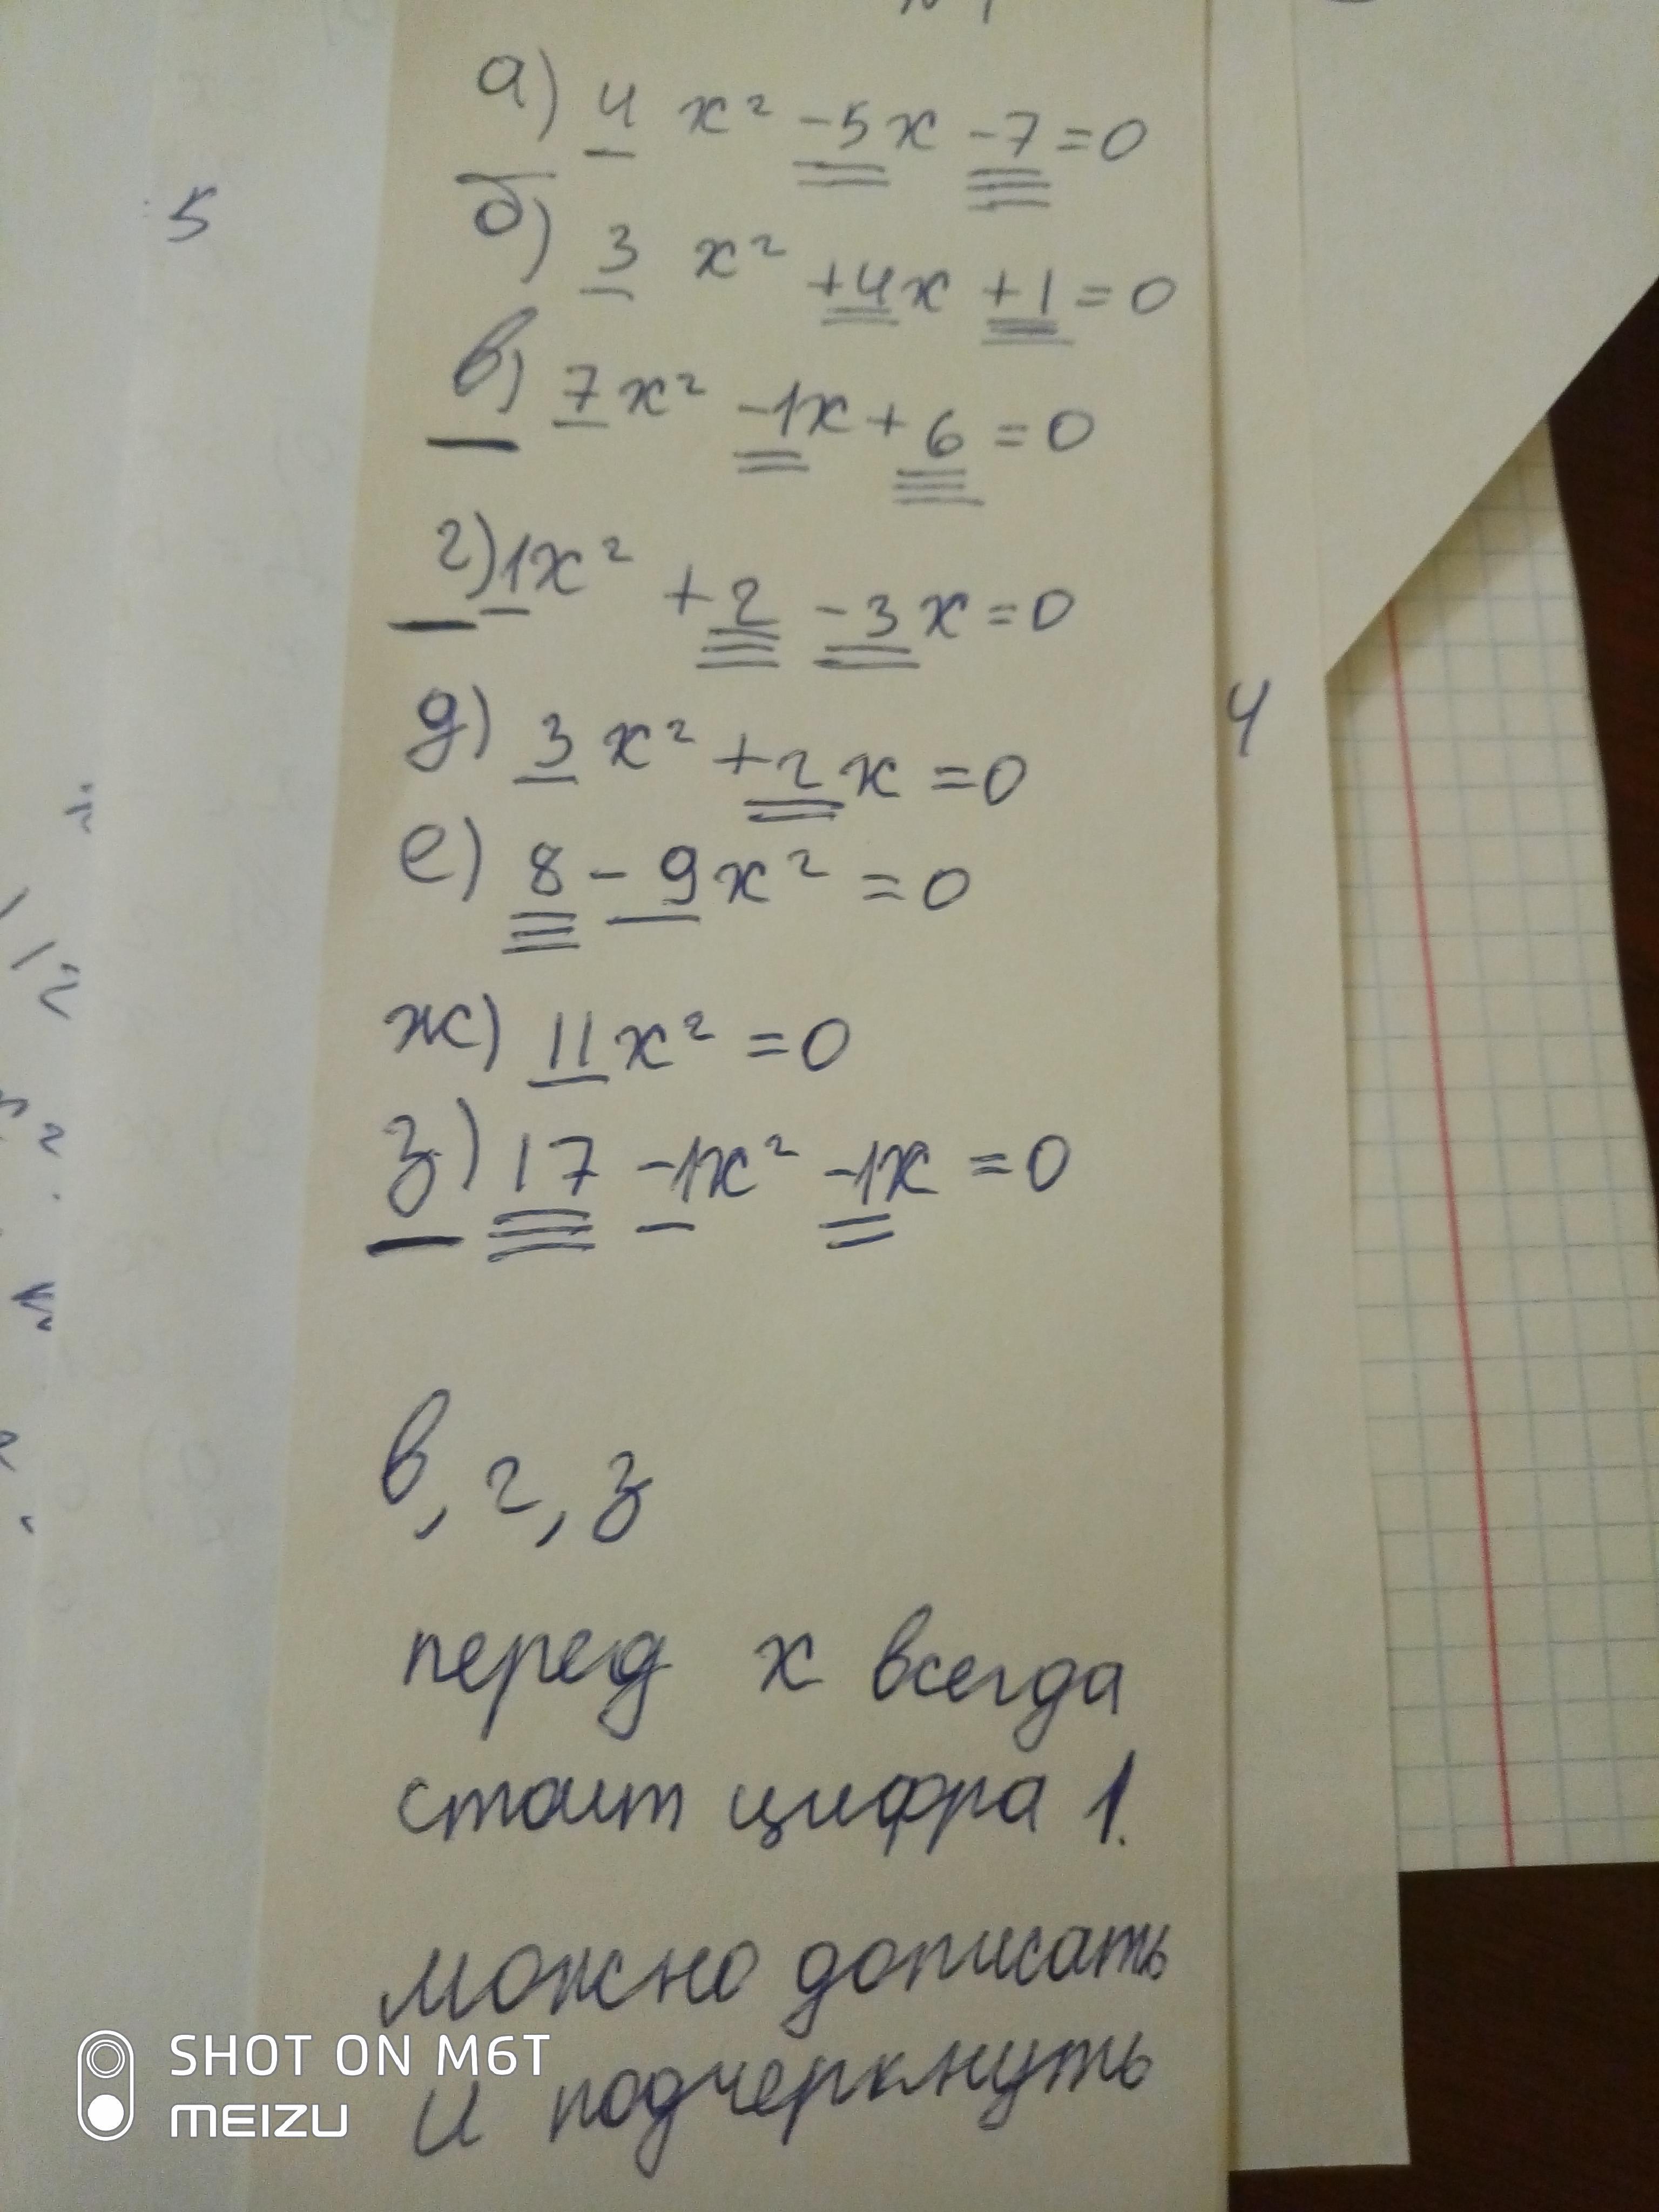 а) 4 x² -5x -7=0
б) 3 x² +4x +1=0
в) 7x² -1x+6=0
г) 1x² +2 -3x=0
д) 3x² +2x=0
е) 8-9x²=0
ж) 11x²=0
з) 17 -1x² -1x=0
в, г, з
перед x всегда
стоит цифра 1.
можно дописать
и подчеркнуть
5
4
SHOT ON M6T
MEIZU